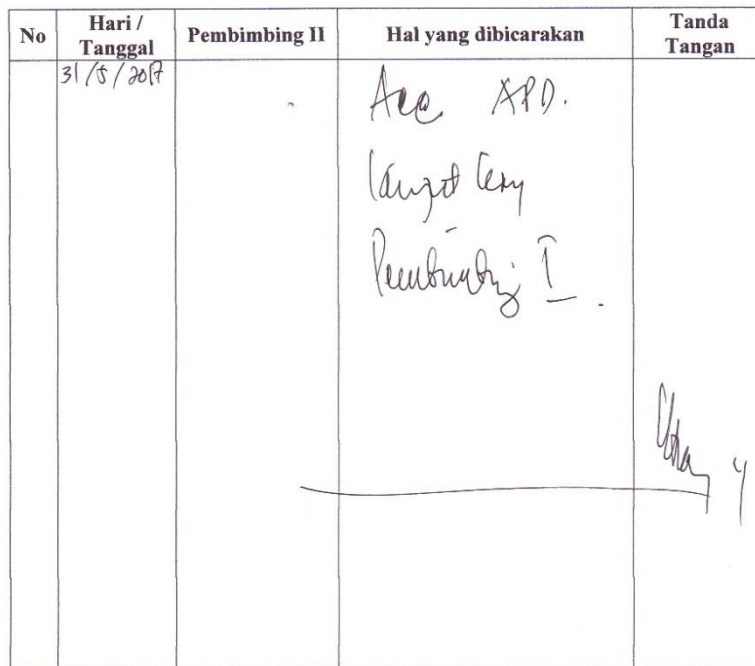 No Hari / Tanggal Pembimbing II Hal yang dibicarakan Tanda Tangan
31/5/2017 Acc APD.
Lanjut
Pembimbing I.